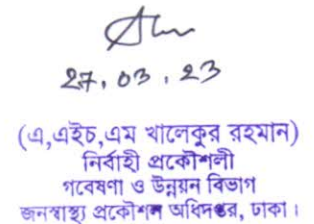 27.03.23
(এ,এইচ,এম খালেকুর রহমান)
নির্বাহী প্রকৌশলী
গবেষণা ও উন্নয়ন বিভাগ
জনস্বাস্থ্য প্রকৌশল অধিদপ্তর, ঢাকা।